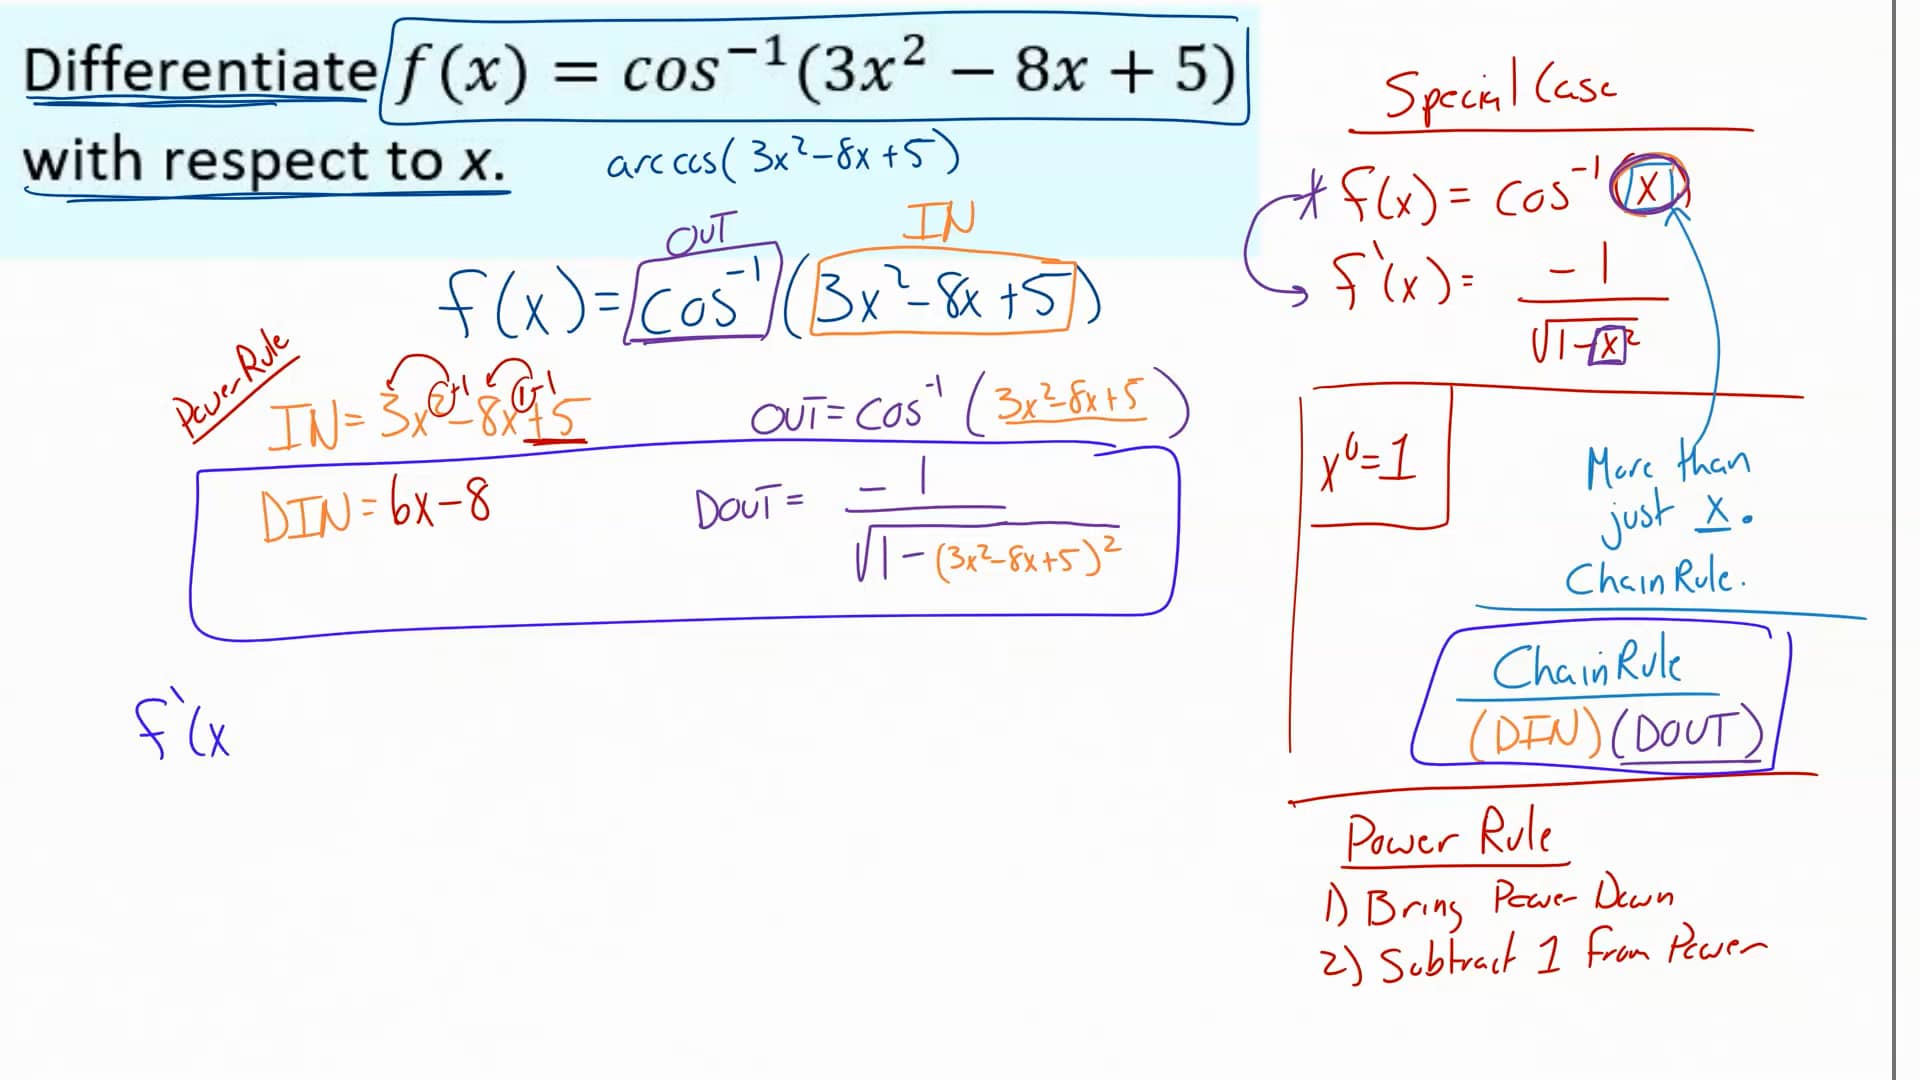 Differentiate f(x) = cos⁻¹(3x² − 8x + 5)
with respect to x.
arccos(3x²-8x+5)
OUT
IN
f(x)=cos⁻¹(3x²-8x+5)
Power Rule
IN=3x²⁻¹-8x¹⁻¹+5
OUT=cos⁻¹(3x²-8x+5)
DIN=6x-8
DOUT= -1/√1-(3x²-8x+5)²
f'(x
Special Case
* f(x)= cos⁻¹(x)
f'(x)= -1/√1-x²
x⁰=1
More than
just x.
Chain Rule.
Chain Rule
(DIN)(DOUT)
Power Rule
1) Bring Power Down
2) Subtract 1 From Power